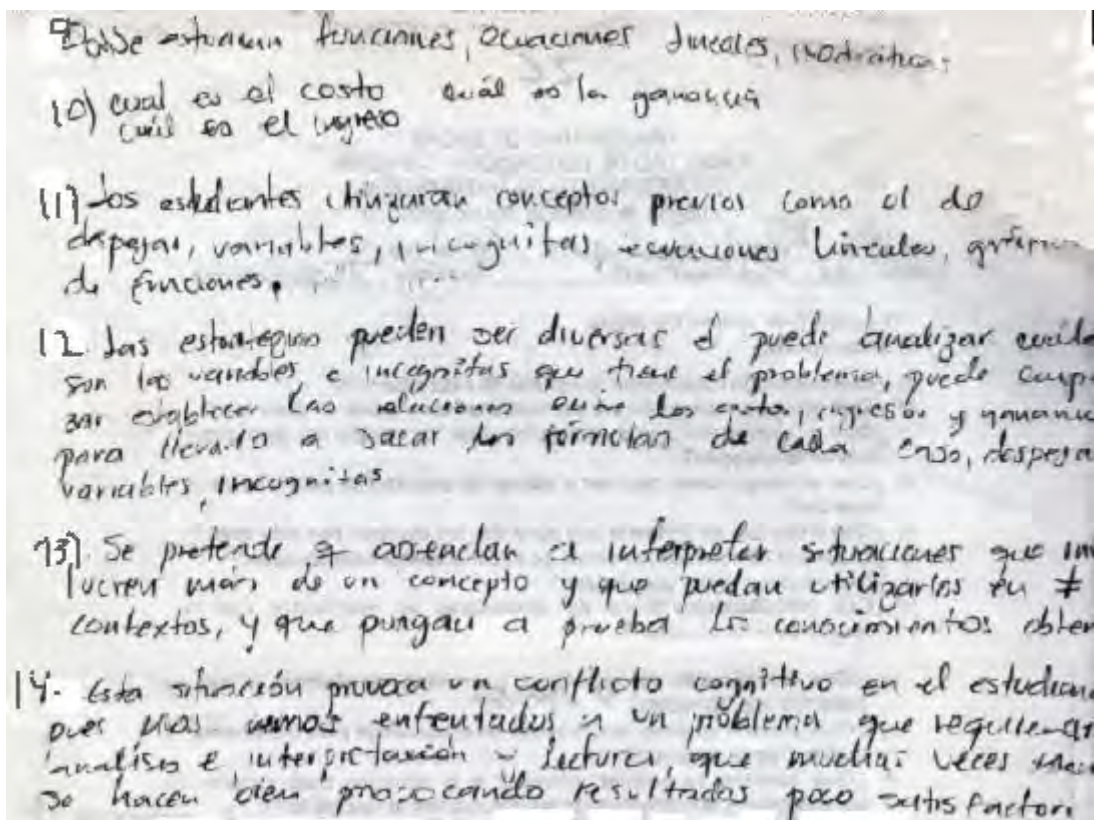 9) Donde estudian funciones, ecuaciones lineales, cuadráticas
10) cual es el costo cuál es la ganancia
cuál es el ingreso
11) Los estudiantes utilizaran conceptos previos como el de
despejar, variables, incognitas, ecuaciones lineales,
de funciones.
12 Las estrategias pueden ser diversas el puede analizar
son las variables e incognitas que tiene el problema, puede
zar establecer las relaciones entre los costos, ingresos y
para llevarlo a sacar las formulas de cada caso,
variables, incognitas
13) Se pretende q aprendan a interpretar situaciones que
lucren más de un concepto y que puedan utilizarlos en ≠
contextos, y que pongan a prueba los conocimientos
14. Esta situación provoca un conflicto cognitivo en el
pues nos vemos enfrentados a un problema que
analisis e interpretación y lectura, que muchas veces
se hacen bien provocando resultados poco